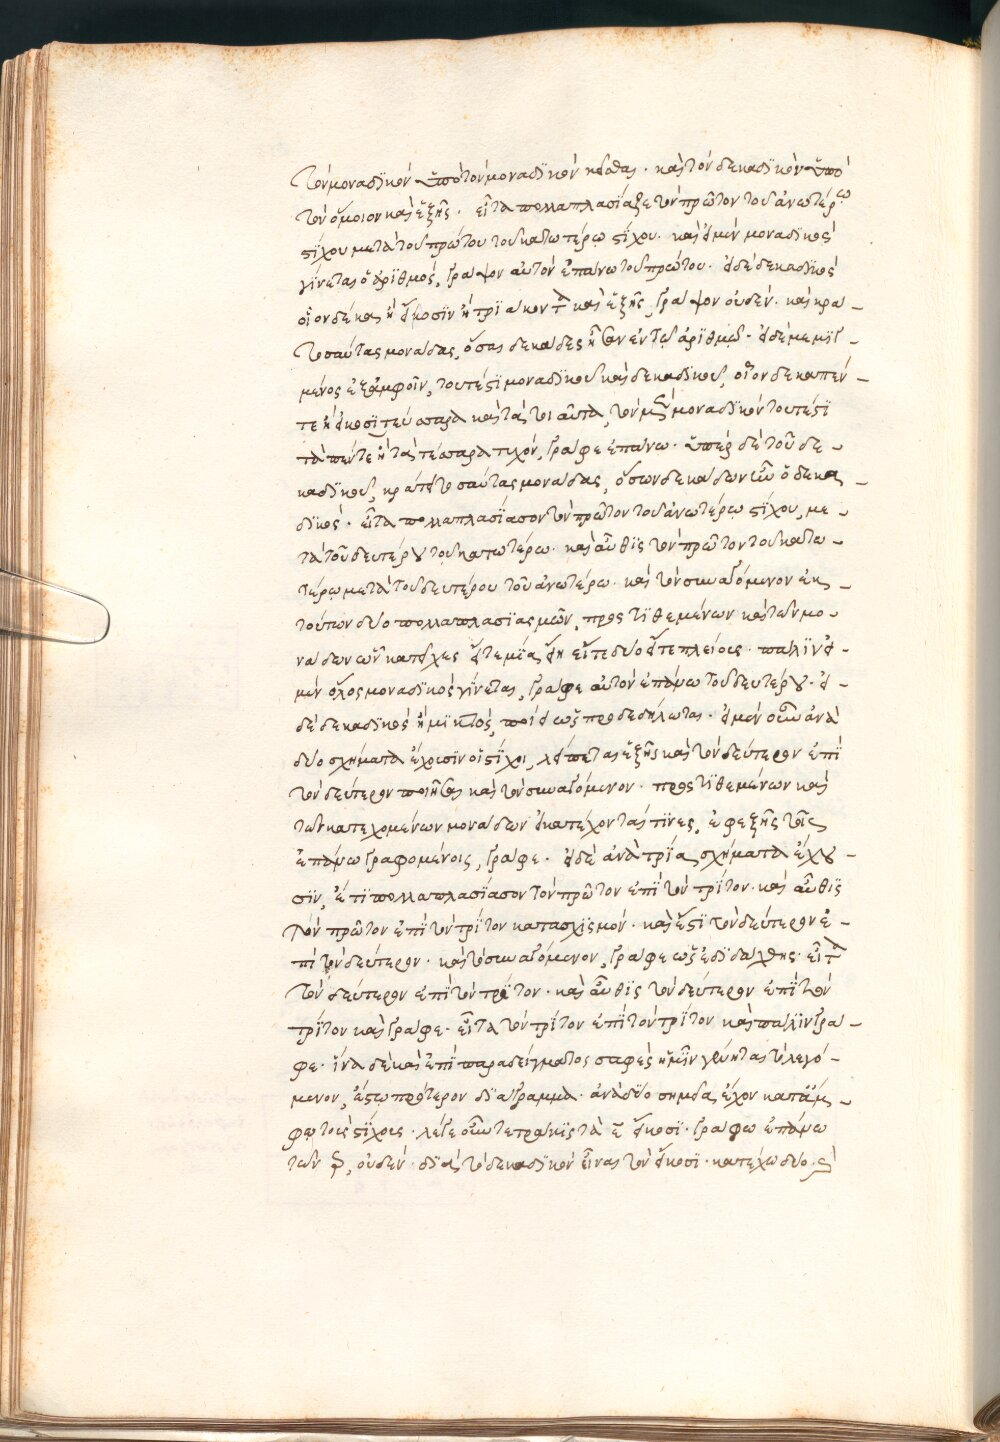 τὸν μοναδϊκὸν ὑπὸ τὸν μοναδϊκὸν κεῖσθαι · καὶ τὸν δεκαδϊκὸν ὑπὸ
τὸν ὅμοιον καὶ ἑξῆς · εἶτα πολλαπλασίαζε τὸν πρῶτον τοῦ ἀνωτέρω
στίχου μετὰ τοῦ πρώτου τοῦ κατωτέρω στίχου · καὶ εἰ μὲν μοναδϊκὸς
γίνεται ὁ ἀρϊθμός, γράψον αὐτὸν ἐπάνω τοῦ πρώτου · εἰ δὲ δεκαδϊκὸς
οἷον δέκα ἢ εἴκοσϊν ἢ τρϊάκοντα καὶ ἑξῆς, γράψον οὐδέν · καὶ κρά –
τ τοσαύτας μονάδας, ὅσας δεκάδες ἦσαν ἐν τῷ ἀρϊθμῷ · εἰ δὲ μεμϊγ –
μένος ἐξ ἀμφοῖν, τουτέστϊ μοναδϊκοῦ καὶ δεκαδϊκοῦ, οἷον δεκαπέν –
τε ἢ εἰκοσϊτέσσαρα καὶ τὰ τοιαῦτα, τὸν μὲν μοναδϊκὸν τουτέστϊ
τὰ πέντε ἢ τὰ τέσσαρα τυχόν, γράφε ἐπάνω · ὑπὲρ δὲ τοῦ δε –
καδϊκοῦ, κράτει τοσαύτας μονάδας, ὅσων δεκάδων ἦν ὁ δεκα –
δϊκός · εἶτα πολλαπλασϊασον τὸν πρῶτον τοῦ ἀνωτέρω στίχου, με –
τὰ τοῦ δευτέρου τοῦ κατωτέρω · καὶ αὖθϊς τὸν πρῶτον τοῦ κατω –
τέρω μετὰ τοῦ δευτέρου τοῦ ἀνωτέρω · καὶ τὸν συναγόμενον ἐκ –
τούτων δύο πολλαπλασϊασμῶν, προστϊθεμένων καὶ τῶν μο –
νάδων ὧν κατεῖχες εἴτε μία εἴη εἴτε δύο εἴτε πλείοις · πάλϊν εἰ –
μὲν ὅλος μοναδϊκὸς γίνεται, γράφε αὐτὸν ἐπάνω τοῦ δευτέρου · εἰ –
δὲ δεκαδϊκὸς ἢ μϊκτός, ποίει ὡς προδεδήλωται · εἰ μὲν οὖν ἀνὰ
δύο σχήματα ἔχοισϊν οἱ στίχοι, λείπεται ἑξῆς καὶ τὸν δεύτερον ἐπὶ
τὸν δεύτερον ποιῆσαι καὶ τὸν συναγόμενον · προστϊθεμένων καὶ
τῶν κατεχομένων μονάδων εἰ κατέχονταί τϊνες, ἐφεξῆς τοῖς
ἐπάνω γραφομένοις, γράφε · εἰ δὲ ἀνὰ τρία σχήματα ἔχου –
σϊν, ἔτϊ πολλαπλασίασον τὸν πρῶτον ἐπὶ τὸν τρίτον · καὶ αὖθϊς
τὸν πρῶτον ἐπὶ τὸν τρίτον κατὰ σχϊσμόν · καὶ ἔτϊ τὸν δεύτερον ἐ –
πὶ τὸν δεύτερον · καὶ τὸ συναγόμενον, γράφε ὡς ἐδϊδάχθης · εἶτα
τὸν δεύτερον ἐπὶ τὸν τρίτον · καὶ αὖθϊς τὸν δεύτερον ἐπὶ τὸν
τρίτον καὶ γράφε · εἶτα τὸν τρίτον ἐπὶ τὸν τρίτον καὶ πάλϊν γρά –
φε · ἵνα δὲ καὶ ἐπὶ παραδείγματος σαφὲς ἡμῖν γένηται τὸ λεγό –
μενον, ἔστω πρότερον δϊάγραμμα · ἀνὰ δύο σημεῖα ἔχον κατ' ἀμ –
φω τοὺς στίχοις · λέγε οὖν τετράκϊς τὰ ε εἴκοσϊ · γράφω ἐπάνω
τῶν, οὐδέν · δϊὰ τὸ δεκαδϊκὸν εἶναι τὸν εἴκοσϊ · κατέχω δύο ·